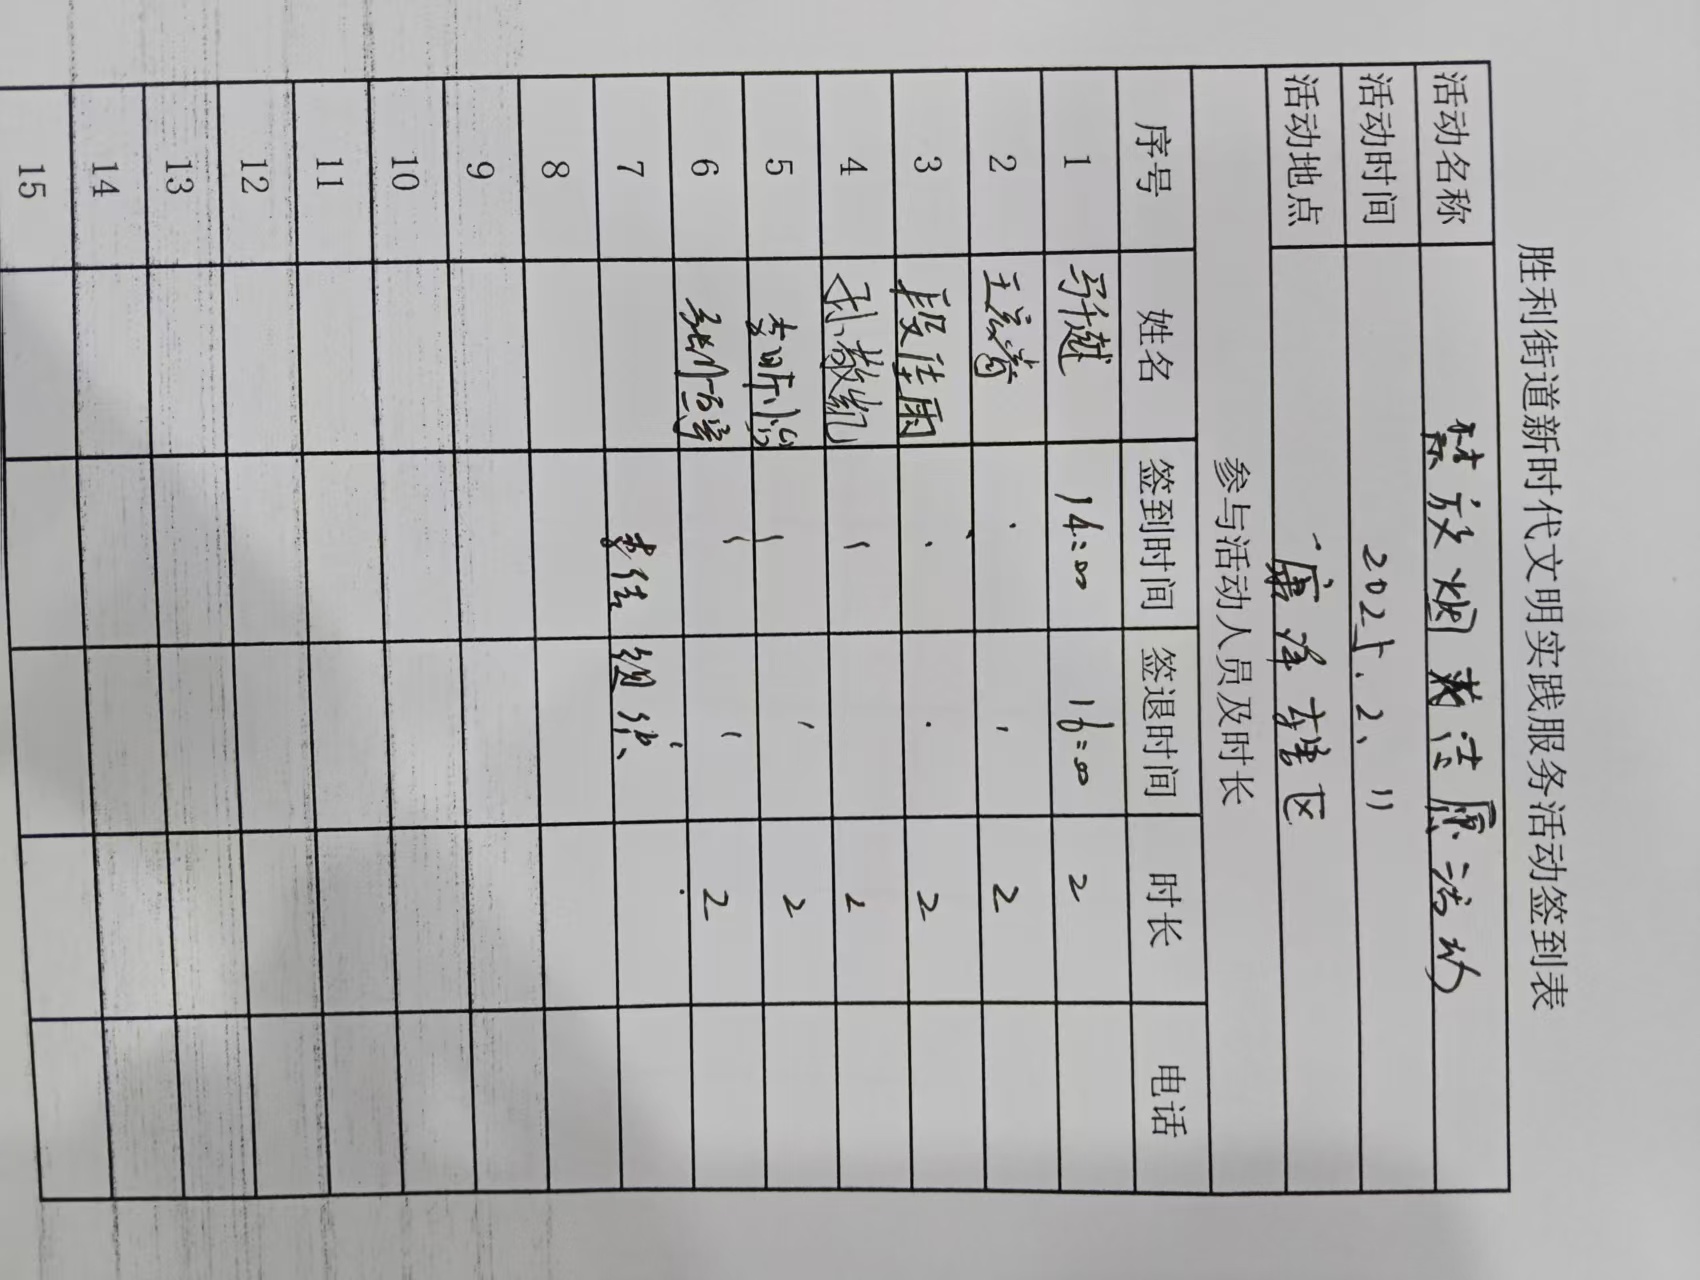 胜利街道新时代文明实践服务活动签到表
活动名称 禁放烟花志愿活动
活动时间 2025.2.11
活动地点 康泽社区
参与活动人员及时长
序号 姓名 签到时间 签退时间 时长 电话
1 马千越 14:00 16:00 2
2 2
3 段佳雨 2
4 孙敬凯 2
5 李昕 2
6 2
7
8
9
10
11
12
13
14
15